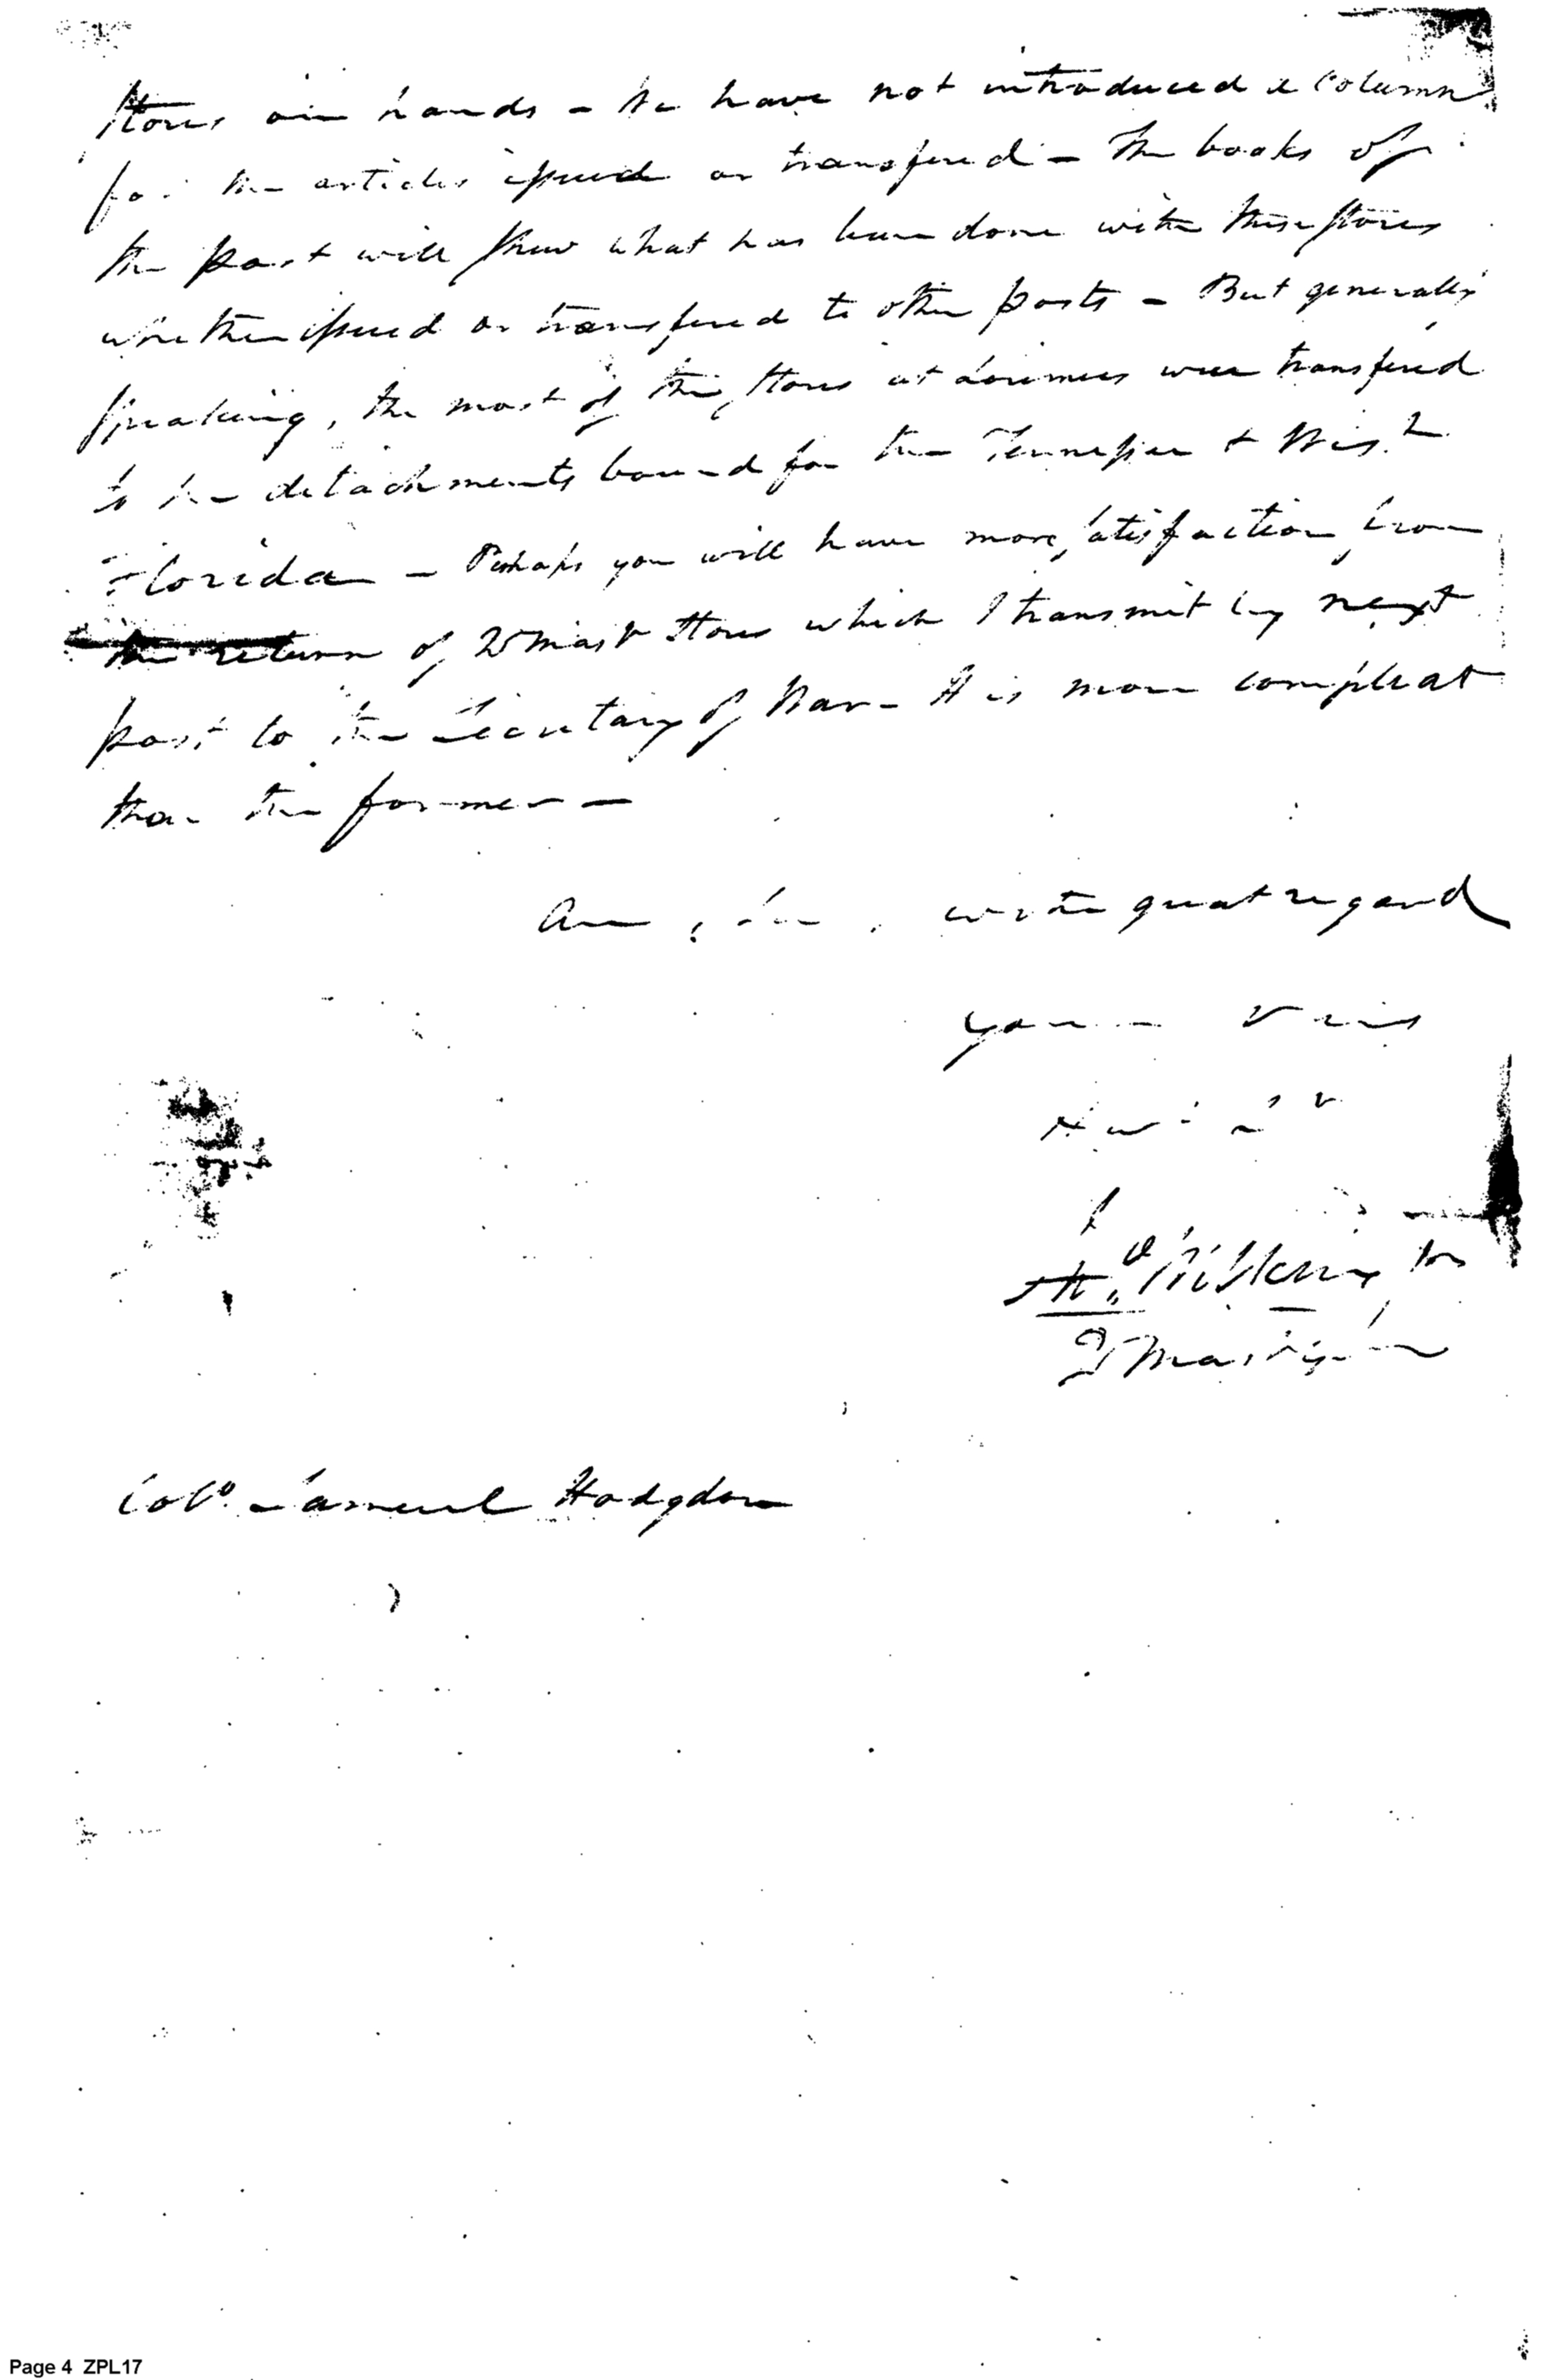 Stores on hands - We have not introduced a Column
for the articles issued or transfered - The books of
the post will shew what has been done with these stores
whether issued or transfered to other posts - But generally
speaking, the most of the stores at were transfered
to the detachments bound for the Tennessee & West
Florida - Perhaps you will have more satisfaction from
the return of Qr Mastr Stores which I transmit by next
post to the Secretary of War - It is more compleat
than the former -
Am, Sir, with great regard
your
Col.o Samuel Hodgdon
Page 4 ZPL17